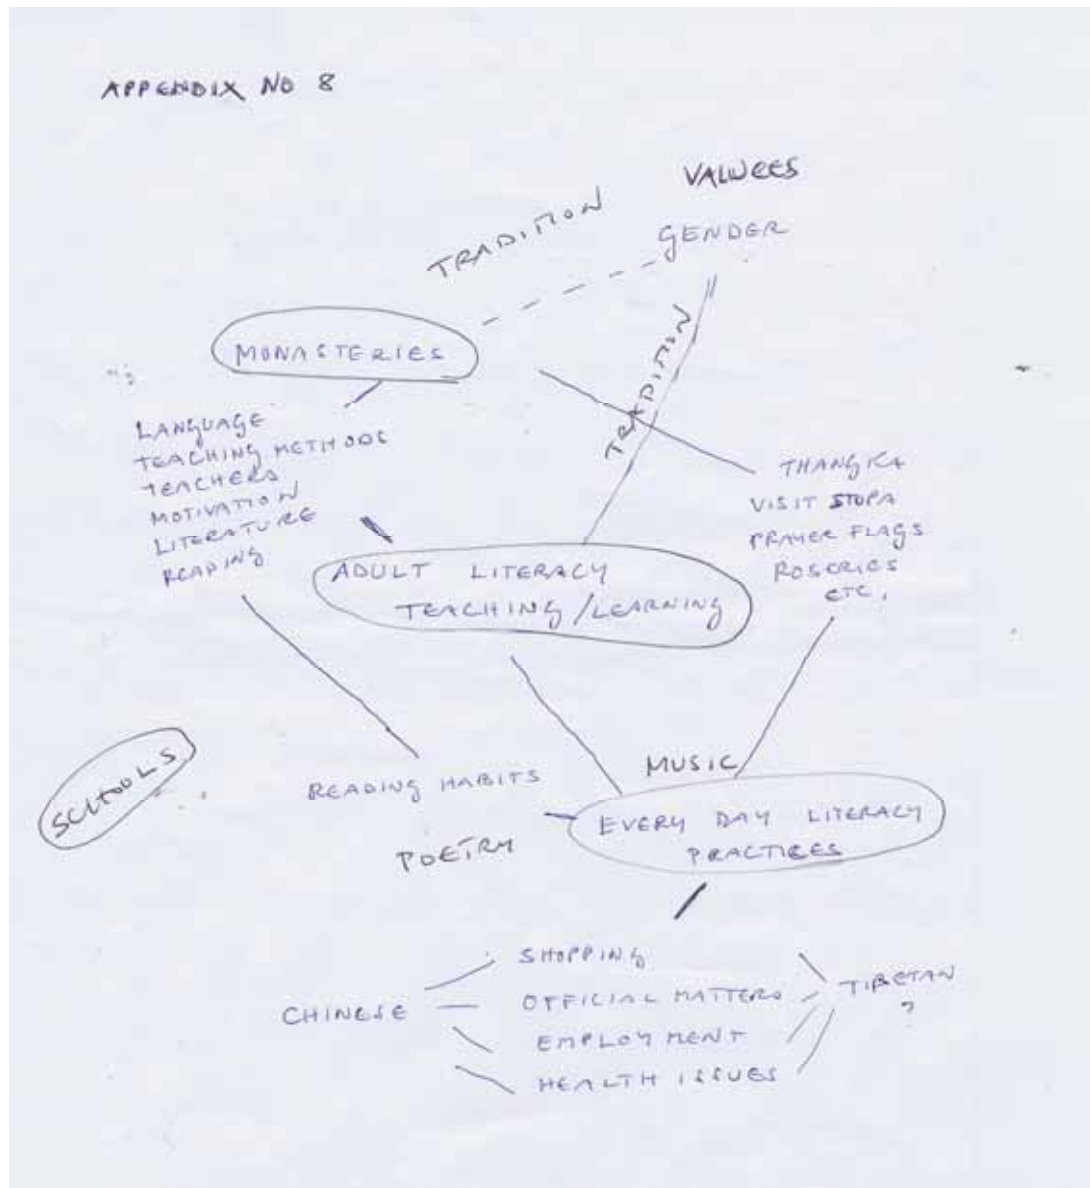 APPENDIX NO 8
VALUEES
TRADITION
GENDER
MONASTERIES
TRADITION
LANGUAGE
TEACHING METHODS
TEACHERS
MOTIVATION
LITERATURE
READING
THANGKA
VISIT STOPA
PRAYER FLAGS
ROSERIES
ETC.
ADULT LITERACY
TEACHING/LEARNING
SCHOOLS
MUSIC
READING HABITS
POETRY
EVERY DAY LITERACY
PRACTICES
SHOPPING
CHINESE
OFFICIAL MATTERS
TIBETAN
?
EMPLOYMENT
HEALTH ISSUES